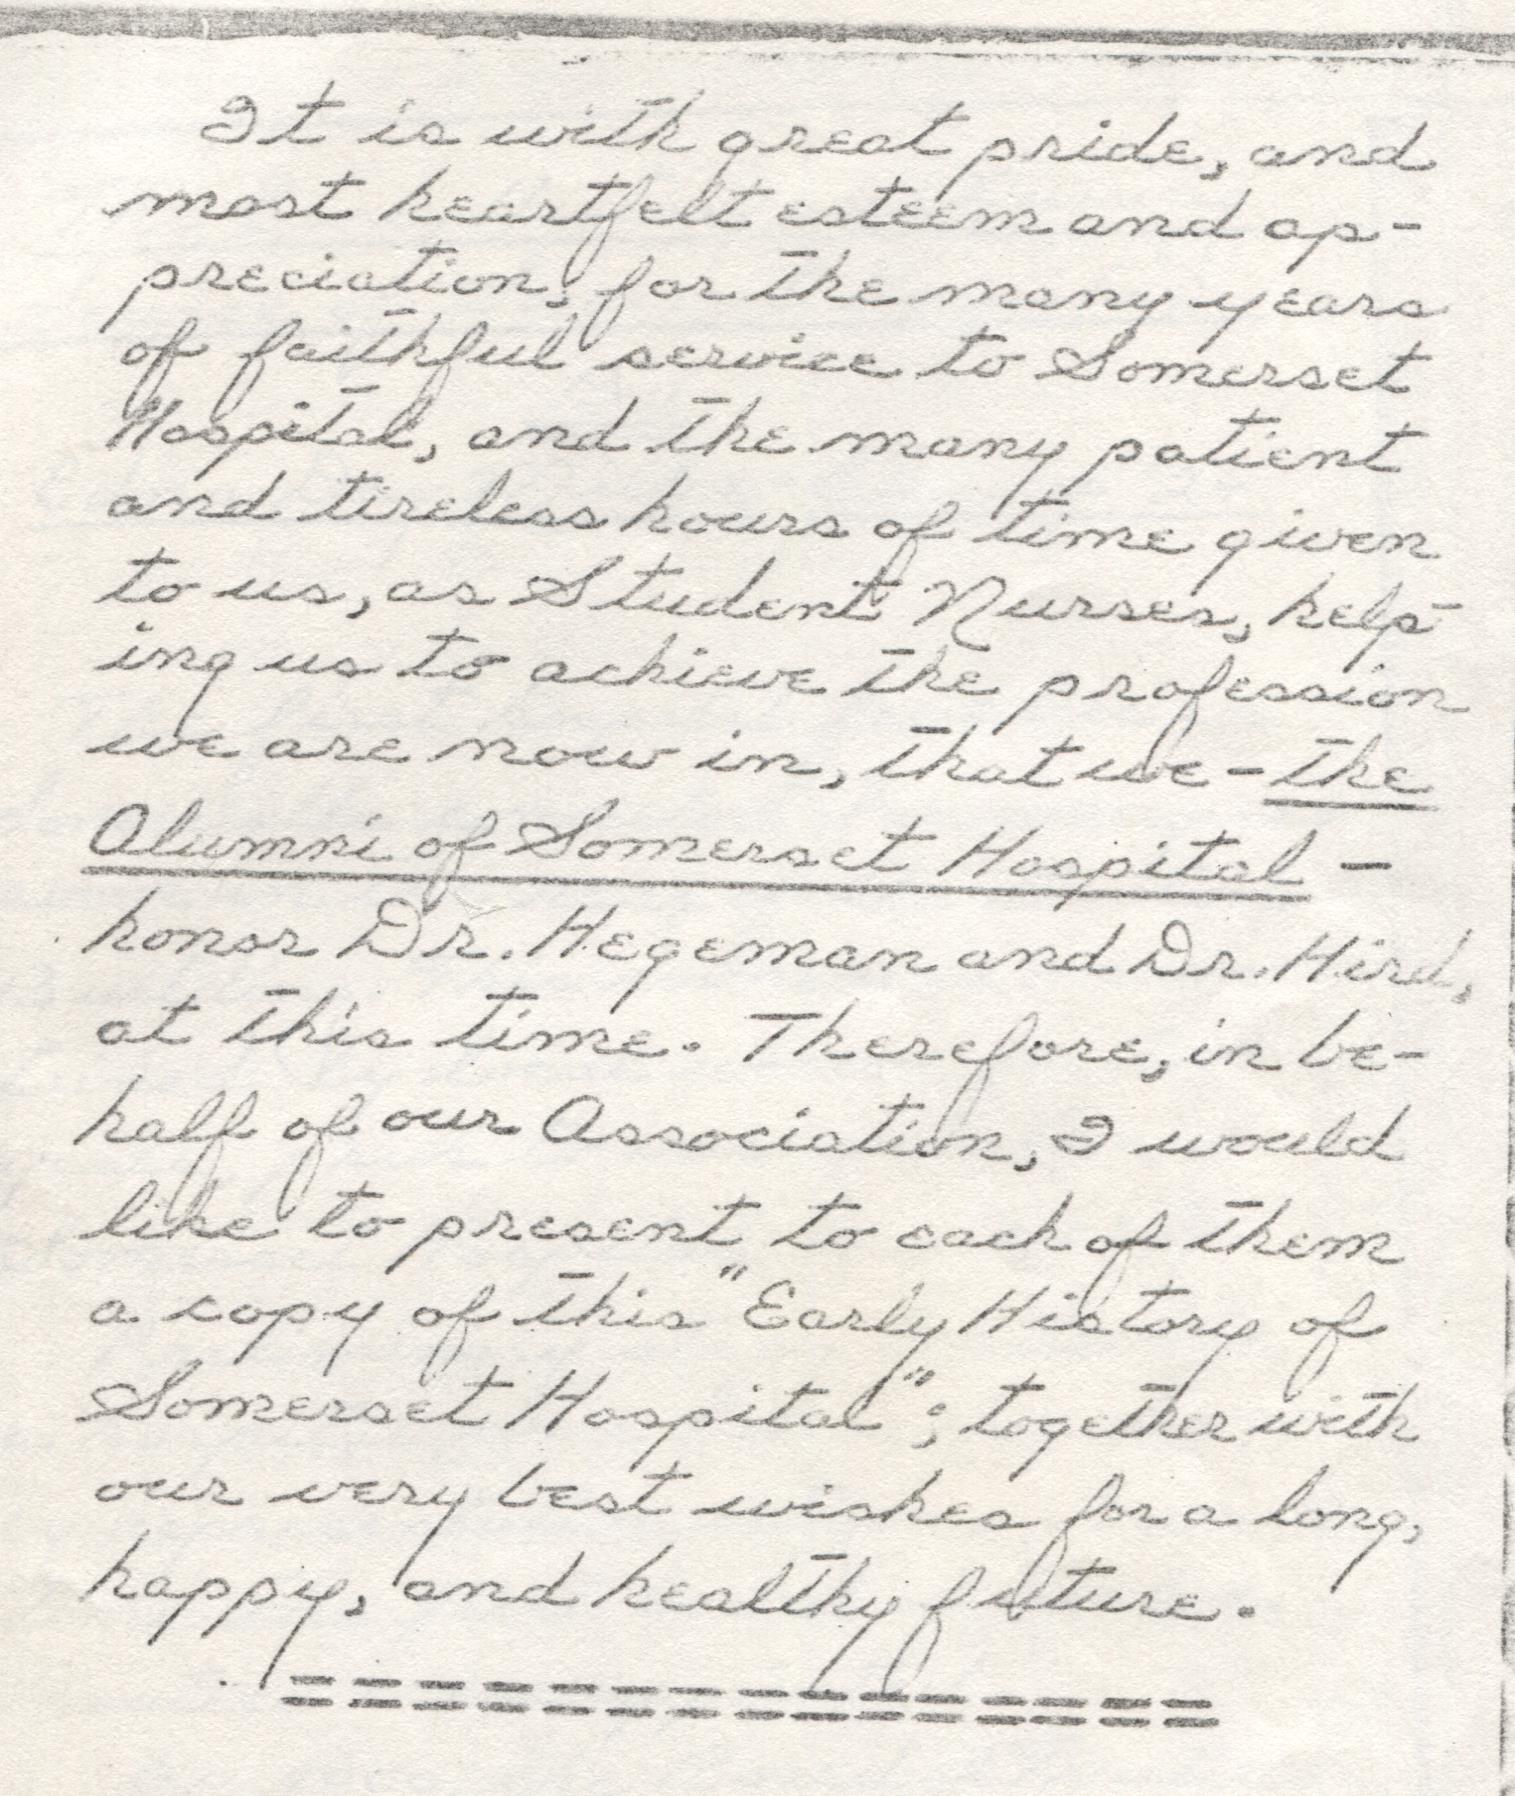 It is with great pride, and
most heartfelt esteem and ap-
preciation, for the many years
of faithful service to Somerset
Hospital, and the many patient
and tireless hours of time given
to us, as Student Nurses, help-
ing us to achieve the profession
we are now in, that we - the
Alumni of Somerset Hospital -
honor Dr. Hegeman and Dr. Hird,
at this time. Therefore, in be-
half of our Association, I would
like to present to each of them
a copy of this "Early History of
Somerset Hospital"; together with
our very best wishes for a long,
happy, and healthy future.